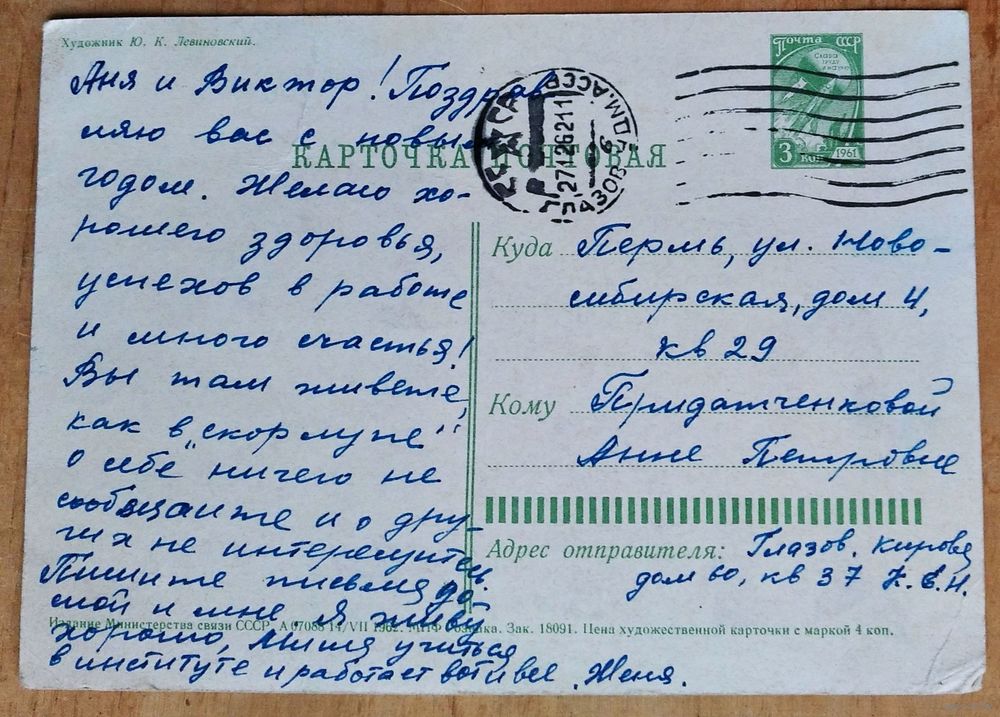 Художник Ю. К. Левиновский.
Аня и Виктор! Поздрав
ляю вас с новым
годом. Желаю хо-
рошего здоровья,
успехов в работе
и много счастья!
Вы там живете,
как в „скорлупе"
о себе ничего не
сообщаите и о дру-
гих не интересуетесь.
Пишите письма до-
мой и мне. Я живу
хорошо, Миша учиться
в институте и работает вот и все. Женя.
КАРТОЧКА ПОЧТОВАЯ
Почта СССР
СЛАВА
ТРУДУ
3 коп
1961
УДМ. АССР
271262 11
ГЛАЗОВ 6
Куда Пермь, ул. Ново-
сибирская, дом 4,
кв 29
Кому Придатченковой
Анне Петровне
Адрес отправителя: Глазов. Кирова
дом 60, кв 37 К. Е. Н.
Издание Министерства связи СССР. А 07088 14/VII 1962. МПФ Гознака. Зак. 18091. Цена художественной карточки с маркой 4 коп.